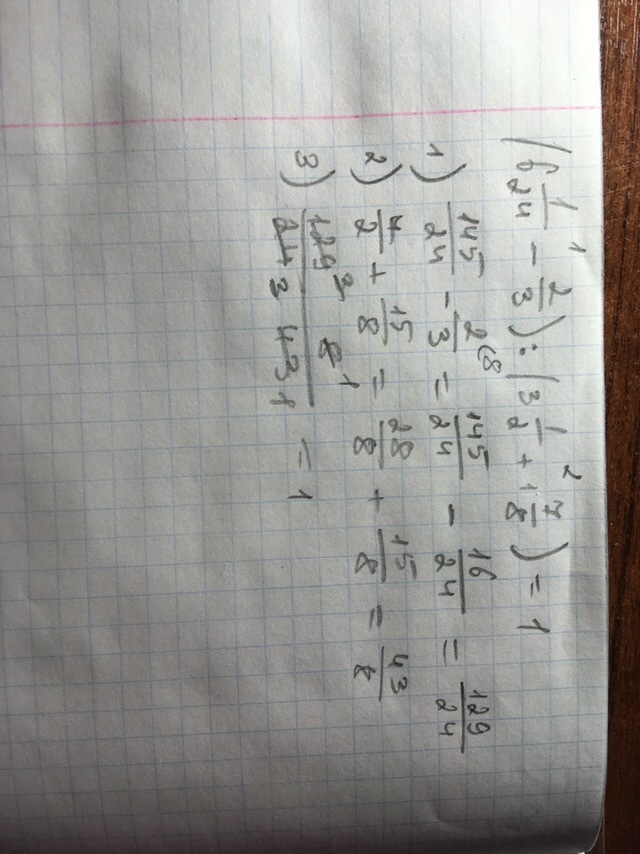 (6 1/24 - 2/3) : (3 1/2 + 1 7/8) = 1
1) 145/24 - 2/3 (8 = 145/24 - 16/24 = 129/24
2) 7/2 + 15/8 = 28/8 + 15/8 = 43/8
3) 129 3 8 1 / 24 3 43 1 = 1